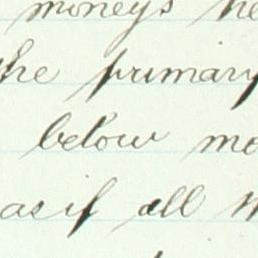 moneys he
the primary
below me
as if all